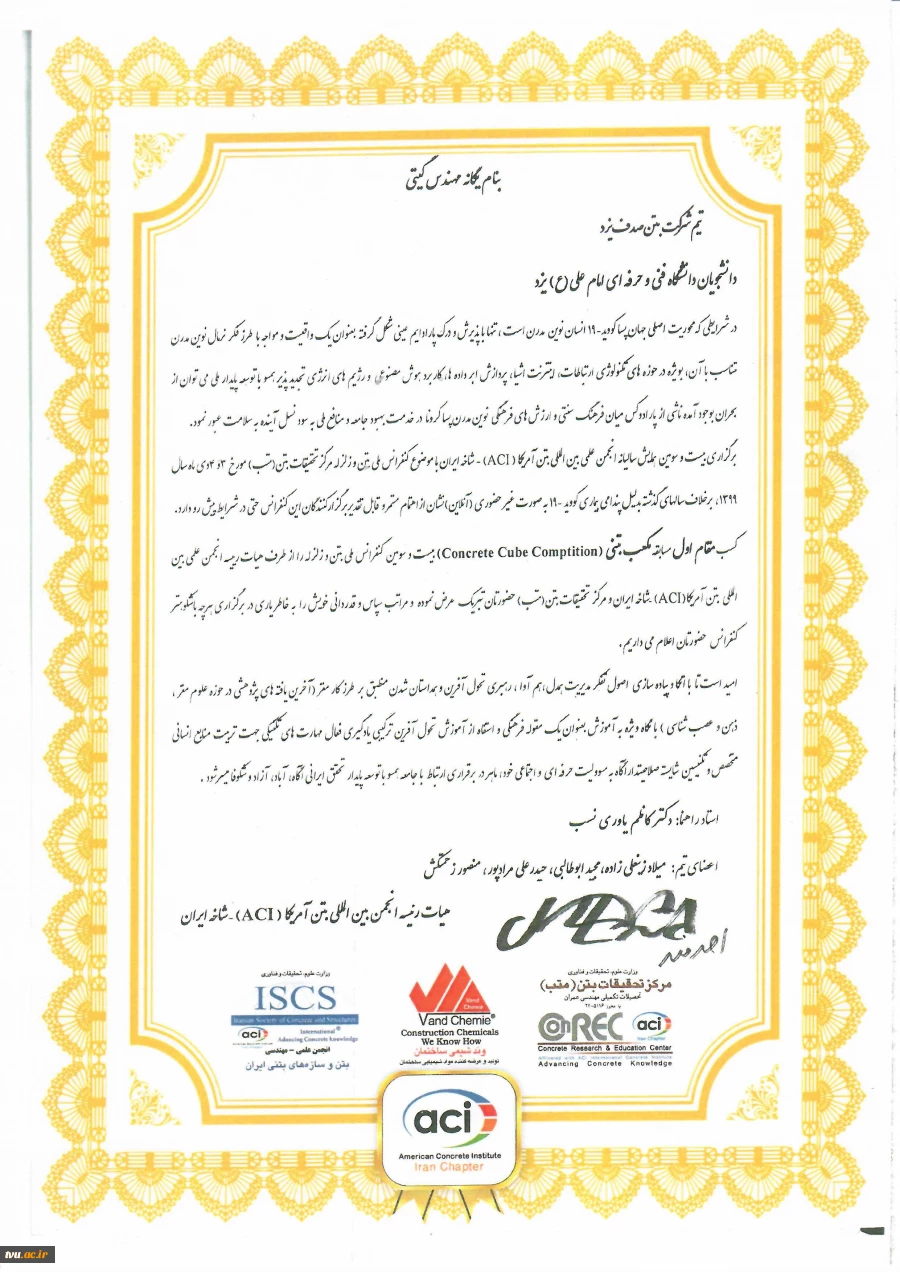 بنام یگانه مهندس گیتی
تیم شرکت بتن صدف یزد
دانشجویان دانشگاه فنی و حرفه ای امام علی (ع) یزد
در شرایطی که محوریت اصلی جهان پسا کووید-۱۹ انسان نوین مدرن است، تنها با پذیرش و درک پارادایم عینی شکل گرفته بعنوان یک واقعیت و مواجه با طرز فکر نرمال نوین مدرن
متناسب با آن، بویژه در حوزه های تکنولوژی ارتباطات، اینترنت اشیا، پردازش ابر داده ها، کاربرد هوش مصنوعی و رژیم های انرژی تجدید پذیر همسو با توسعه پایدار ملی می توان از
بحران بوجود آمده ناشی از پارادوکس میان فرهنگ سنتی و ارزش های فرهنگی نوین مدرن پسا کرونا در خدمت بهبود جامعه و منافع ملی به سود نسل آینده به سلامت عبور نمود.
برگزاری بیست و سومین همایش سالیانه انجمن علمی بین المللی بتن آمریکا (ACI) - شاخه ایران با موضوع کنفرانس ملی بتن و زلزله مرکز تحقیقات بتن (متب) مورخ ۳ و ۴ دی ماه سال
۱۳۹۹، برخلاف سالهای گذشته بدلیل پندمی بیماری کووید -۱۹ به صورت غیر حضوری (آنلاین) نشان از اهتمام مستمر و قابل تقدیر برگزار کنندگان این کنفرانس حتی در شرایط پیش رو دارد.
کسب مقام اول مسابقه مکعب بتنی (Concrete Cube Comptition) بیست و سومین کنفرانس ملی بتن و زلزله را از طرف هیات رییسه انجمن علمی بین
المللی بتن آمریکا(ACI)-شاخه ایران و مرکز تحقیقات بتن(متب) حضورتان تبریک عرض نموده و مراتب سپاس و قدردانی خویش را به خاطر یاری در برگزاری هرچه باشکوهتر
کنفرانس حضورتان اعلام می داریم.
امید است تا با اتکا و پیاده سازی اصول تفکر مدیریت همدل، هم آوا، رهبری تحول آفرین و همداستان شدن منطبق بر طرز کار مغز (آخرین یافته های پژوهشی در حوزه علوم مغز،
ذهن و عصب شناسی) با نگاه ویژه به آموزش بعنوان یک مقوله فرهنگی و استفاده از آموزش تحول آفرین ترکیبی یادگیری فعال مهارت های تکنیکی جهت تربیت منابع انسانی
متخصص و تکنسین شایسته صلاحیتدار آگاه به مسوولیت حرفه ای و اجتماعی خود، ماهر در برقراری ارتباط با جامعه همسو با توسعه پایدار تحقق ایرانی آگاه، آباد، آزاد و شکوفا میسر شود.
استاد راهنما: دکتر کاظم یاوری نسب
اعضای تیم: میلاد زینعلی زاده، مجید ابوطالبی، حیدرعلی مرادپور، منصور زحمتکش
هیات رئیسه انجمن بین المللی بتن آمریکا (ACI) - شاخه ایران
وزارت علوم، تحقیقات و فناوری
مرکز تحقیقات بتن (متب)
تحصیلات تکمیلی مهندسی عمران
ConREC
aci
Iran Chapter
Concrete Research & Education Center
Affiliated with ACI International Concrete Institute
Advancing Concrete Knowledge
Vand Chemie
Vand Chemie®
Construction Chemicals
We Know How
وند شیمی ساختمان
تولید و عرضه کننده مواد شیمیایی ساختمان
وزارت علوم، تحقیقات و فناوری
ISCS
Iranian Society of Concrete and Structures
aci
International®
Advancing Concrete Knowledge
انجمن علمی - مهندسی
بتن و سازه‌های بتنی ایران
aci
American Concrete Institute
Iran Chapter
tvu.ac.ir